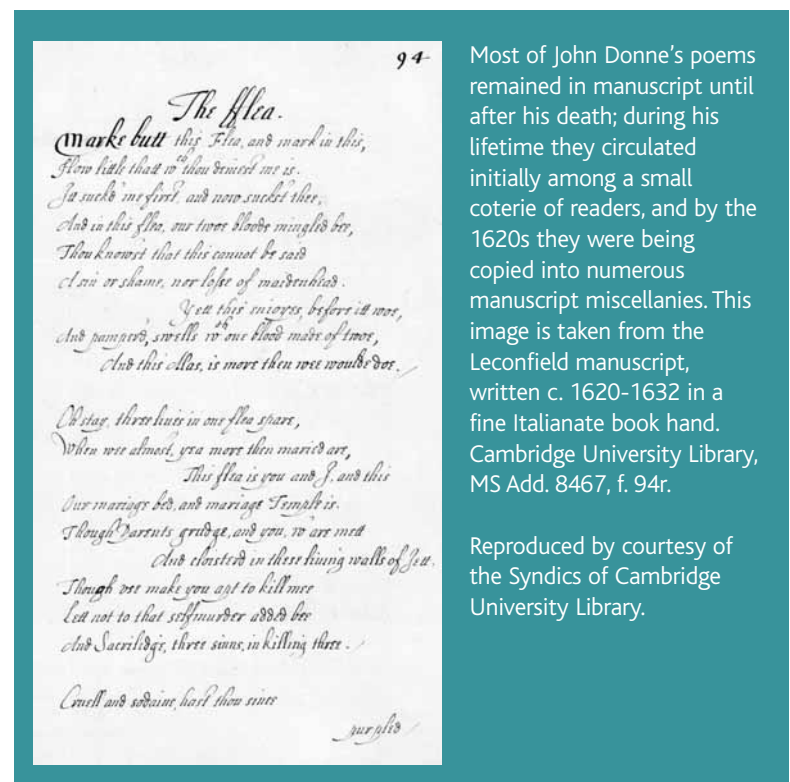 94
The fflea.
Marke butt this Flea, and mark in this,
How little thatt wch thou deniest me is.
It suckd me first, and now suckst thee,
And in this flea, our twoe bloods mingled bee,
Thou knowst that this cannot be said
A sin or shame, nor losse of maidenhead.
Yett this enioyes, before itt woe,
And pamperd, swells wth one blood made of twoe,
And this allas, is more then wee woulde doe.
Oh stay, three liues in one flea spare,
When wee almost, yea more then maried are,
This flea is you and I, and this
Our mariage bed, and mariage Temple is.
Though Parents grudge, and you, w'are mett
And cloisterd in these liuing walls of Jett.
Though vse make you apt to kill mee
Lett not to that selfmurder added bee
And Sacriledge, three sinns, in killing three.
Cruell and sodaine, hast thou since
purpled
Most of John Donne's poems
remained in manuscript until
after his death; during his
lifetime they circulated
initially among a small
coterie of readers, and by the
1620s they were being
copied into numerous
manuscript miscellanies. This
image is taken from the
Leconfield manuscript,
written c. 1620-1632 in a
fine Italianate book hand.
Cambridge University Library,
MS Add. 8467, f. 94r.
Reproduced by courtesy of
the Syndics of Cambridge
University Library.